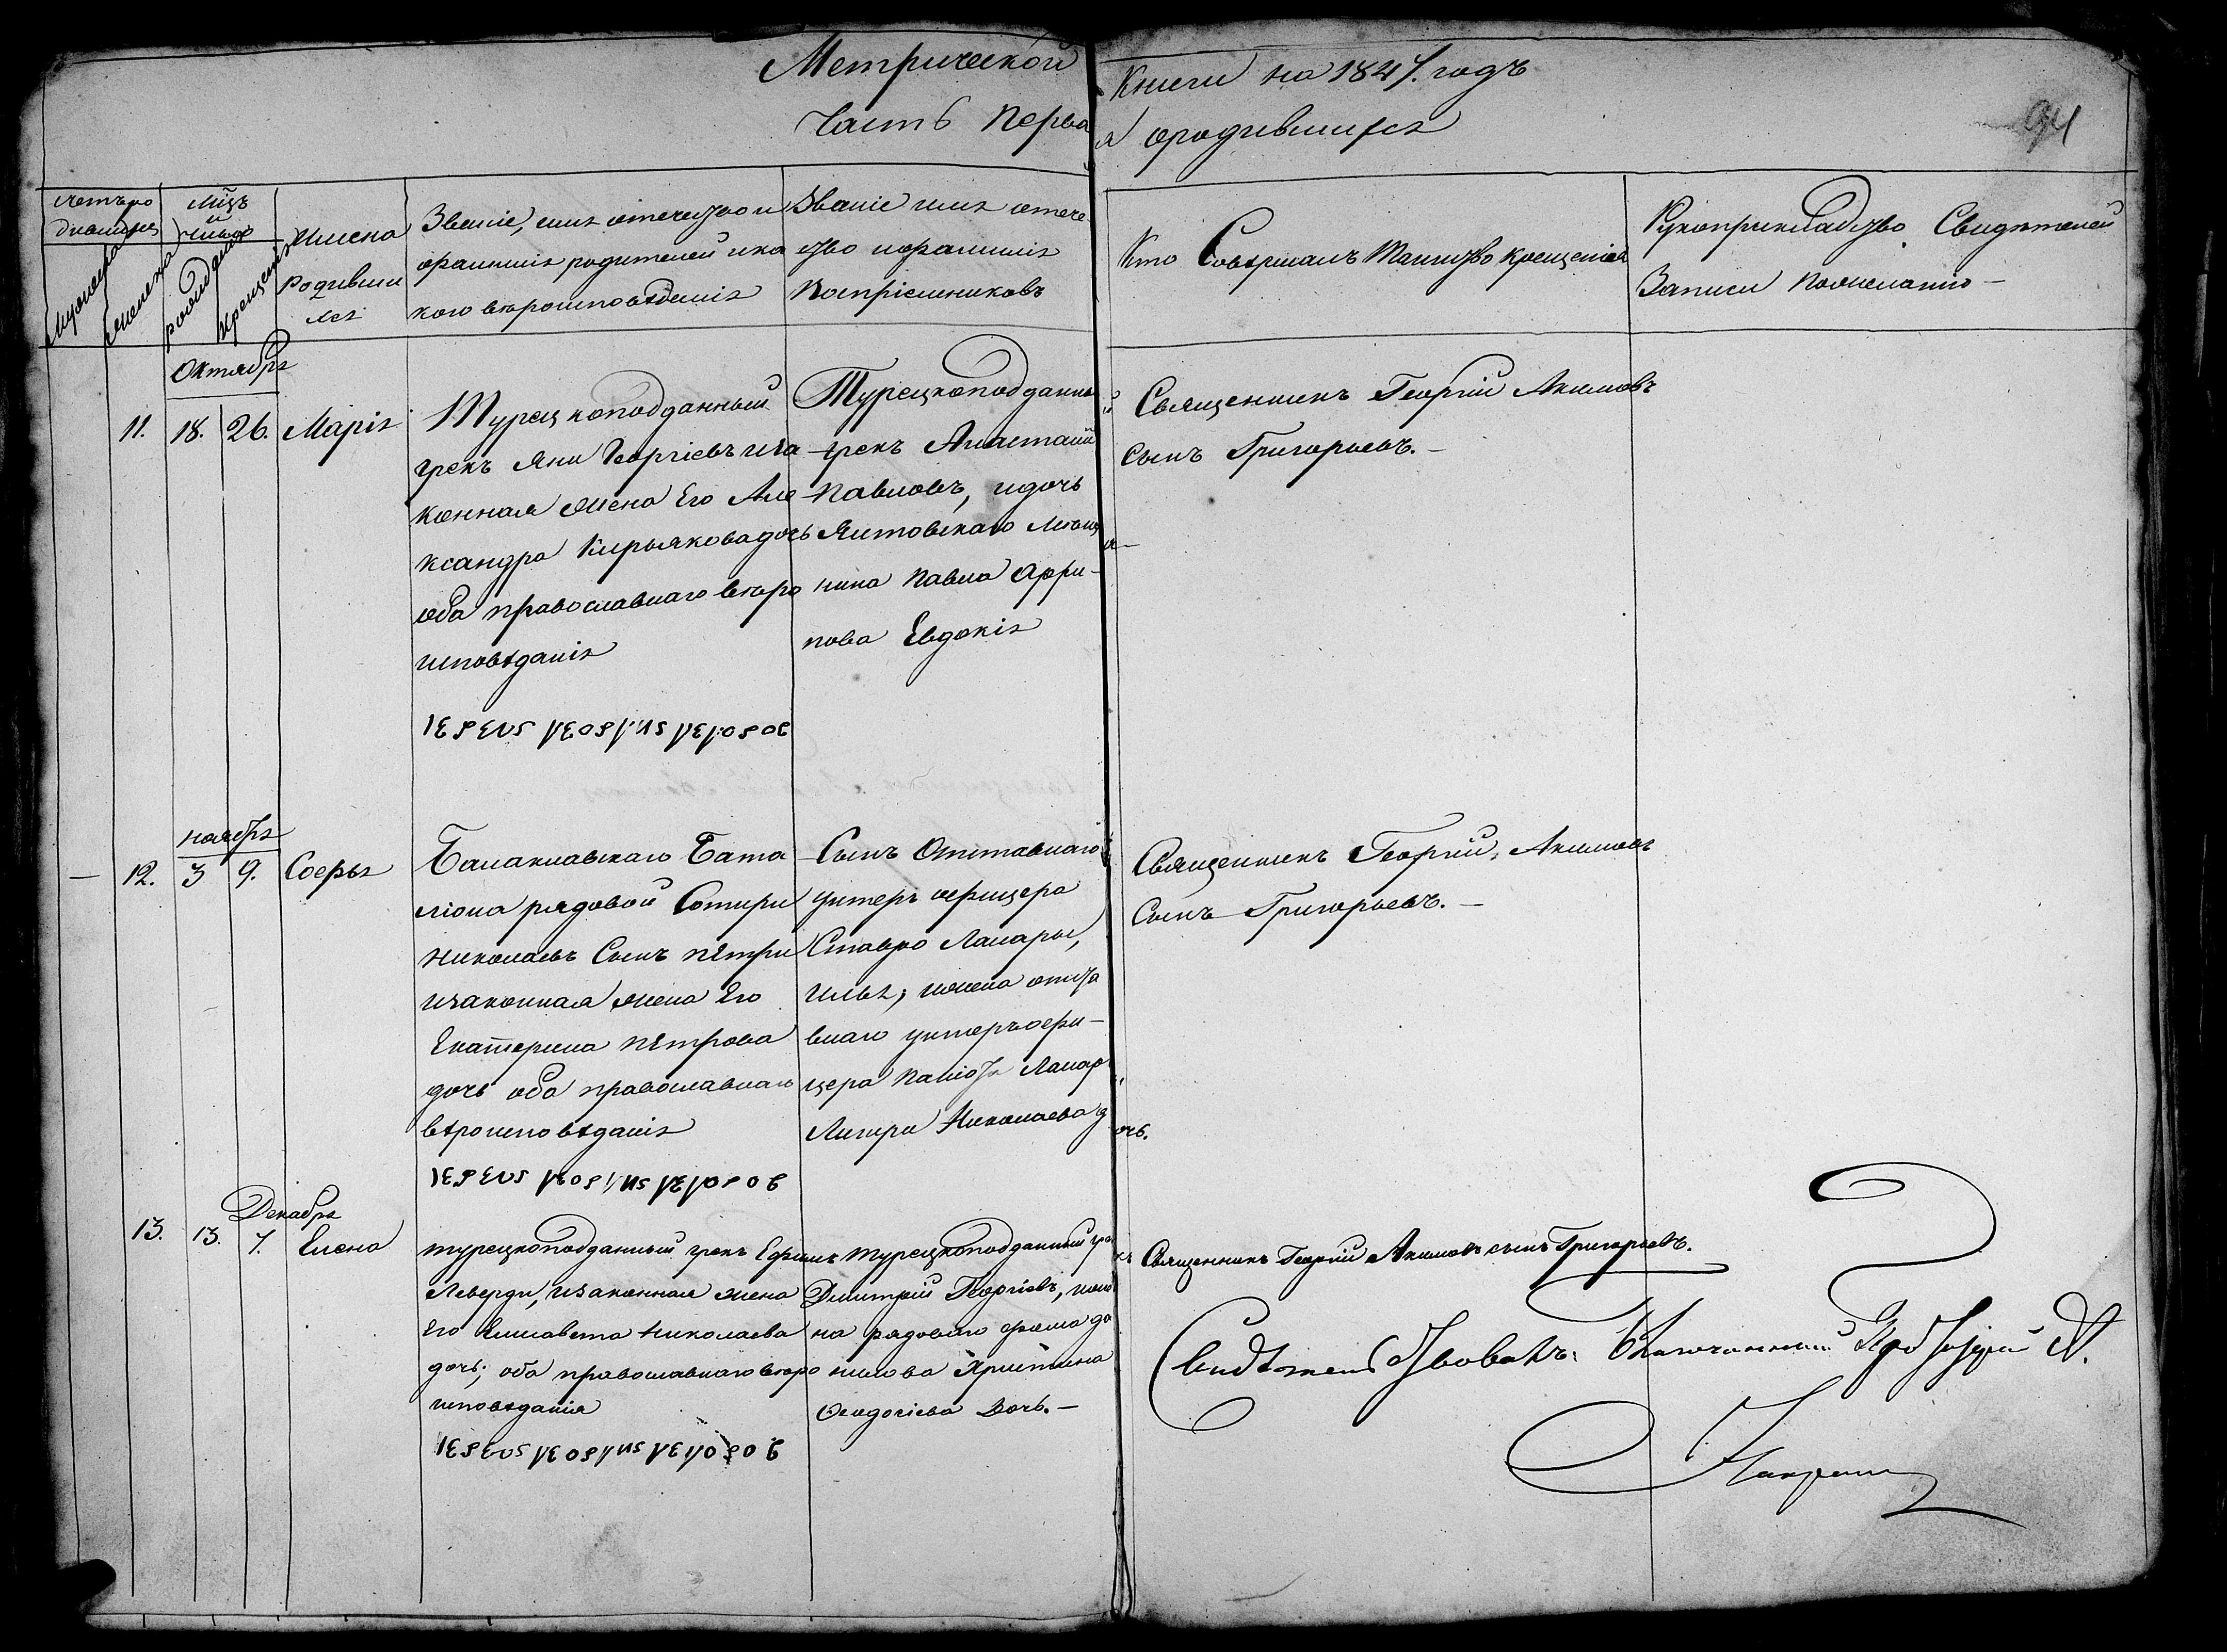 Метрической Книги на 1847. годъ
Часть Первая о родившихся
94
Счетъ ро
дившихся
Мужеска
Женска
Мцъ
и
Число
Рожденія
Крещенія
Имена
Родивши
хся
Званіе, имя отечество и
фамилія родителей и ка
кого вѣроисповѣданія
Званіе имя отече
ство и фамилія
Воспріемниковъ
Кто Совѣршалъ Таинство Крещенія
Рукоприкладство Свидѣтелей
Записи Пожеланію
Октября
11. 18. 26. Марія
Турецкоподданный
грекъ Яни Георгіевъ и за
конная жена Его Але
ксандра Кирьякова дочь
оба православнаго вѣро
исповѣданія
Турецкоподданный
грекъ Анастасій
Павловъ, и дочь
Ялтовскаго Мѣща
нина Павла Арфи-
нова Евдокія
Священникъ Георгій Акимовъ
сынъ Григорьевъ.
ноября
12. 3 9. Софья
Балаклавскаго Бата
ліона рядовой Сотири
Николаевъ Сынъ пѣтри
и законная жена Его
Екатерина пѣтрова
дочь оба православнаго
вѣроисповѣданія
Сынъ Отставнаго
унтеръ офицера
Ставро Лапары,
Илья, и жена отста
внаго унтеръ офи-
цера Лапар
Николаева дочь.
Священникъ Георгій, Акимовъ
Сынъ Григорьевъ.
Декабря
13. 13. 7. Елена
турецкоподданный грекъ Ефимъ
Леверди, и законная жена
Его Елисавета Николаева
дочь; оба православнаго вѣро
исповѣданія
Турецкоподданный грекъ
Дмитрій Георгіевъ, и жена
на рядоваго
Христина
Феодосіева Дочь.
Священникъ Георгій Акимовъ сынъ Григорьевъ.
Свидѣтельствовалъ: Благочинный